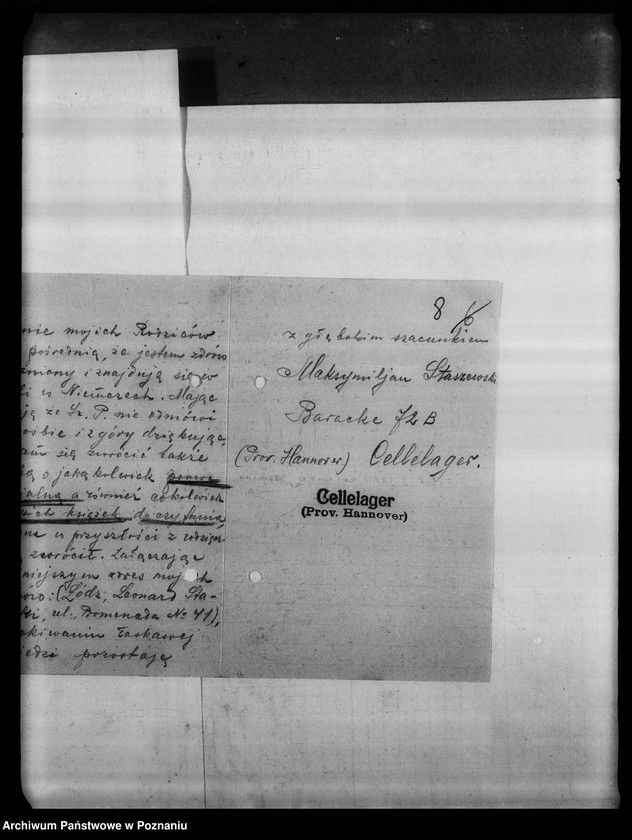 nie mojich Rodziców
pośrednią, że jestem zdrów
i znajdują się w
w Niemczech. Mając
że Sz. P. nie odmówi
ośbie i z góry dziękując
się zwrócić także
o jaką kolwiek pomoc
a również cokolwiek
książek do czytania,
w przyszłości z
zwrócił. Załączając
niejszym adres mojich
(Łódź, Leonard Sta-
ul. Promenada № 41),
ekiwaniu łaskawej
iedzi pozostaję
8 6
z głębokim szacunkiem
Maksymiljan Staszewski
Baracke 72 B
(Prov. Hannover) Cellelager.
Cellelager
(Prov. Hannover)
Archiwum Państwowe w Poznaniu